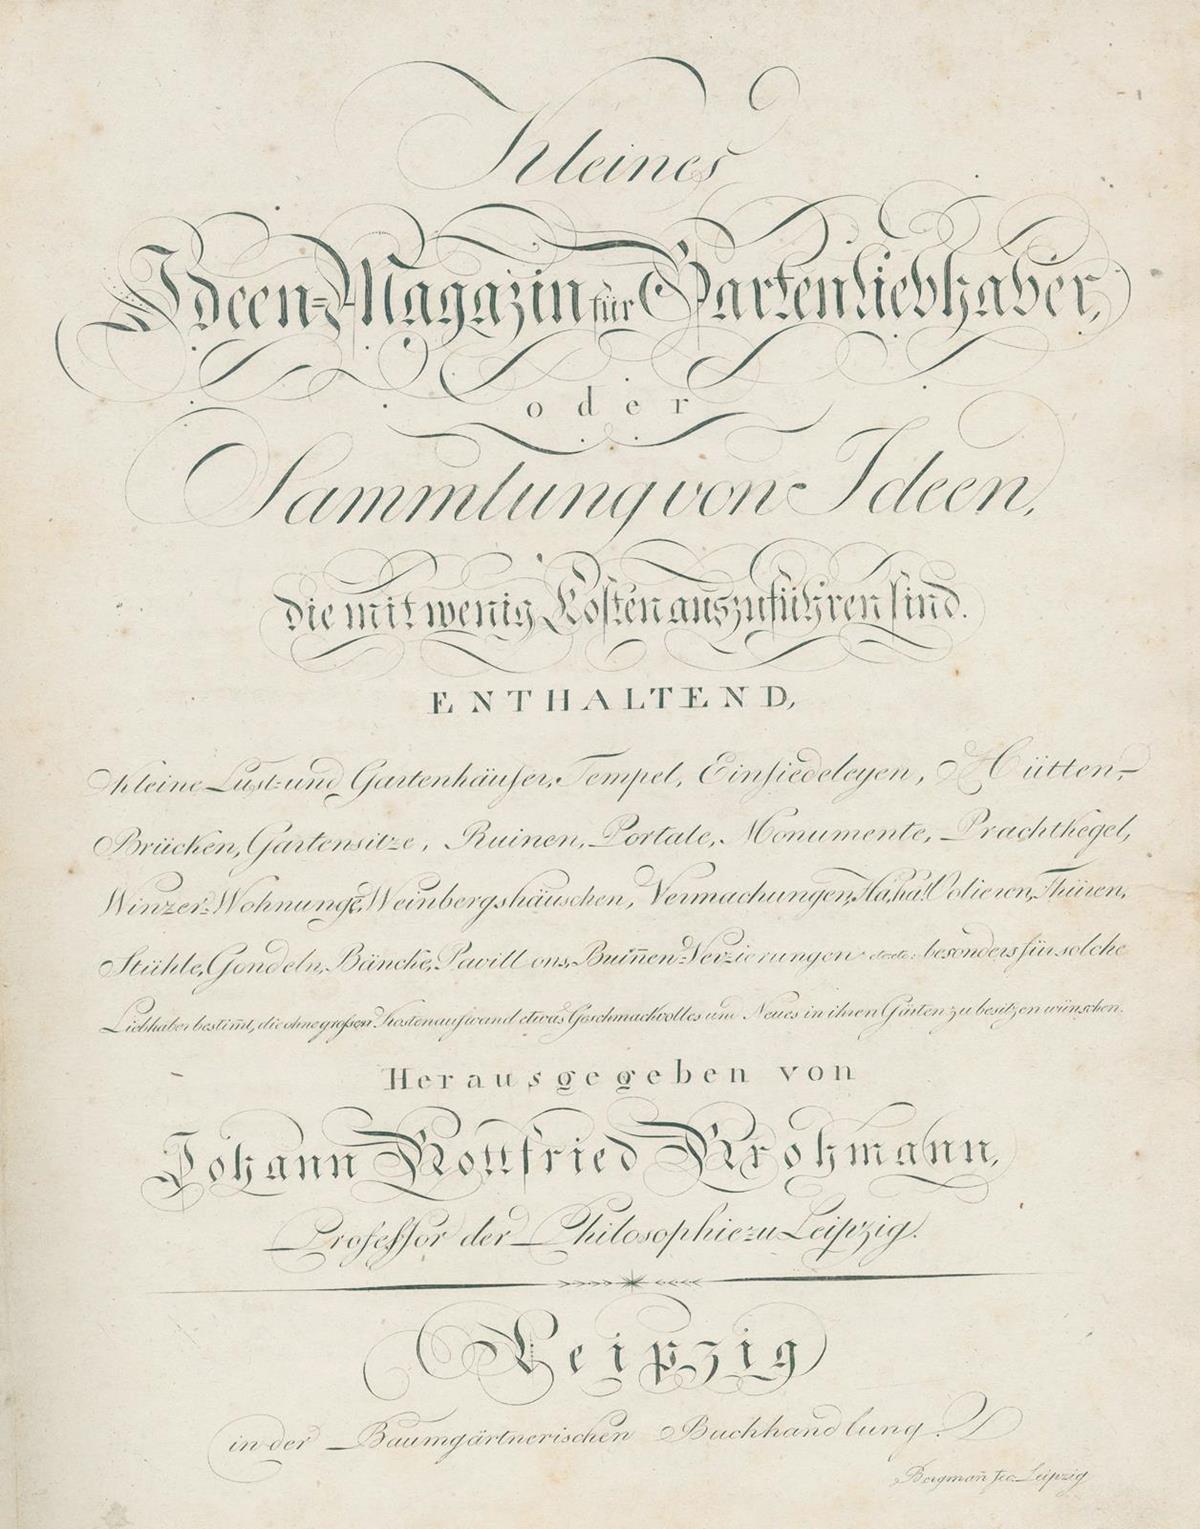 Kleines
Ideen-Magazin für Gartenliebhaber,
oder
Sammlung von Ideen,
die mit wenig Kosten auszuführen sind.
ENTHALTEND,
Kleine Lust- und Gartenhäuser, Tempel, Einsiedeleyen, Hütten,
Brücken, Gartensitze, Ruinen, Portale, Monumente, Prachtkegel,
Winzer-Wohnung, Weinbergshäuschen, Vermachungen, Ha, ha! Volieren, Thüren,
Stühle, Gondeln, Bänke, Pavillons, Bruñen-Verzierungen etc. etc. besonders für solche
Liebhaber bestim̄t, die ohne großen Kostenaufwand etwas Geschmackvolles und Neues in ihren Gärten zu besitzen wünschen.
Herausgegeben von
Johann Gottfried Grohmann,
Professor der Philosophie zu Leipzig.
Leipzig
in der Baumgärtnerischen Buchhandlung.
Bergmañ fec. Leipzig